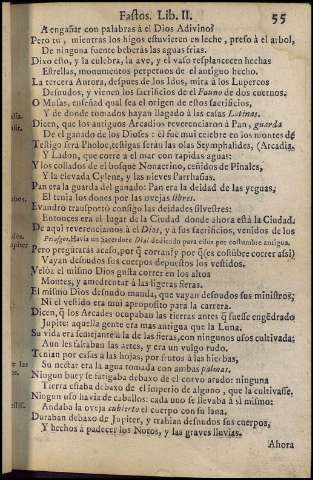 Fastos. Lib. II. 55
A engañar con palabras à el Dios Adivino?
Pero tu, mientras los higos estuvieren en leche, preso à el arbol,
De ninguna fuente beberàs las aguas frias.
Dixo esto, y la culebra, la ave, y el vaso resplanecen hechas
Estrellas, monumentos perpetuos de el antiguo hecho.
La tercera Aurora, despues de los Idus, mira à los Lupercos
Desnudos, y vienen los sacrificios de el Fauno de dos cuernos.
O Musas, enseñad qual sea el origen de estos sacrificios,
Y de donde tomados hayan llegado à las casas Latinas.
Dicen, que los antiguos Arcadios reverenciaron à Pan, guarda
De el ganado de los Dioses: èl fuè mui celebre en los montes de
Testigo serà Pholoe, testigas seràn las olas Stymphalides, (Arcadia.
Y Ladon, que corre à el mar con rapidas aguas:
Y los collados de el bosque Nonacrino, ceñidos de Pinales,
Y la elevada Cylene, y las nieves Parrhasias.
Pan era la guarda del ganado: Pan era la deidad de las yeguas,
El tenia los dones por las ovejas libres.
Evandro transportò consigo las deidades silvestres:
Entonces era el lugar de la Ciudad donde ahora està la Ciudad.
De aqui reverenciamos à el Dios, y à sus sacrificios, venidos de los
Pelasgos. Havia un Sacerdote Dial dedicado para ellos por costumbre antigua.
Pero preguntaràs acaso, por q̃ corran? y por q̃ (es costūbre correr assi)
Vayan desnudos sus cuerpos depuestos los vestidos.
Velòz el mismo Dios gusta correr en los altos
Montes, y amedrentar à las ligeras fieras.
El mismo Dios desnudo manda, que vayan desnudos sus ministros;
Ni el vestido era mui aproposito para la carrera.
Dicen, q̃ los Arcades ocupaban las tierras antes q̃ fuesse engēdrado
Jupiter: aquella gente era mas antigua que la Luna.
Su vida era semejante à la de las fieras, con ningunos usos cultivada:
Aun les faltaban las artes, y era un vulgo rudo.
Tenian por casas à las hojas, por frutos à las hierbas,
Su nectar era la agua tomada con ambas palmas.
Ningun buey se fatigaba debaxo de el corvo arado: ninguna
Tierra estaba debaxo de el imperio de alguno, que la cultivasse.
Ningun uso havia de caballos: cada uno se llevaba à sì mismo:
Andaba la oveja cubierto el cuerpo con su lana.
Duraban debaxo de Jupiter, y trahian desnudos sus cuerpos,
Y hechos à padecer los Notos, y las graves lluvias.
Ahora